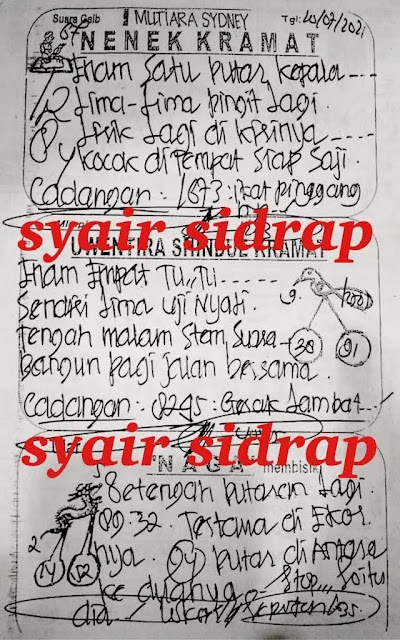 Suara Gaib MUTIARA SYDNEY Tgl: 20/07/2021
NENEK KRAMAT
Enam Satu putar kepala ----
Lima-Lima pingit Lagi.
Lirik Lagi di kirinya ----
Kocok di Tempat Siap Saji.
Cadangan: 1673: ikat pinggang
syair sidrap
UWENTIRA SHINDUL KRAMAT
Enam Empat Tu,, Tu -----
Sendiri Lima Uji Nyali. 9.
Tengah malam Stem Suara --- 38 91
Bangun pagi jalan bersama.
Cadangan: 8245: Gerak Lambat --
syair sidrap
NAGA membisik
Setengah putaran Lagi.
89.32. Pertama di Ekor
nya. 04 putar di Antara
2 14 12
ke duanya - Stop,,, Itu
dia